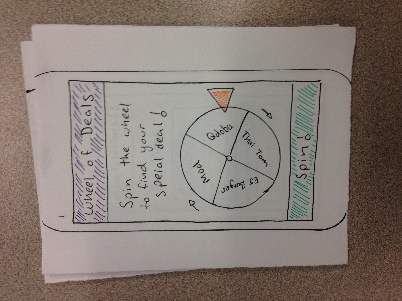 Wheel of Deals
Spin the wheel
to find your
speial deal!
Qdoba
Thai Tom
Mod
Spin!